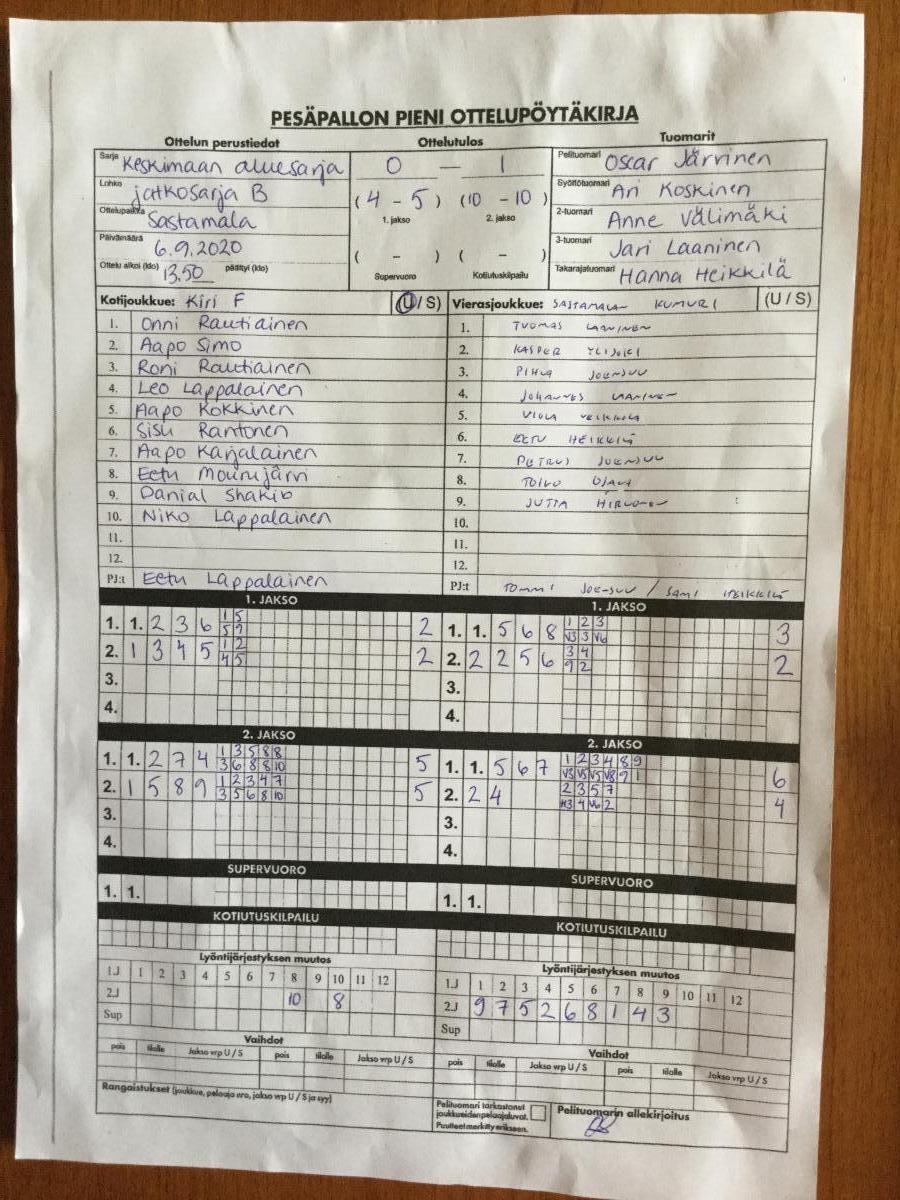 PESÄPALLON PIENI OTTELUPÖYTÄKIRJA
Ottelun perustiedot Ottelutulos Tuomarit
Sarja Keskimaan aluesarja
Lohko jatkosarja B
Ottelupaikka Sastamala
Päivämäärä 6.9.2020
Ottelu alkoi (klo) 13.50 päättyi (klo)
0 — 1
(4 - 5) (10 - 10)
1. jakso 2. jakso
( - ) ( - )
Supervuoro Kotiutuskilpailu
Pelituomari Oscar Järvinen
Syöttötuomari Ari Koskinen
2-tuomari Anne Välimäki
3-tuomari Jari Laaninen
Takarajatuomari Hanna Heikkilä
Kotijoukkue: Kiri F (U / S)
1. Onni Rautiainen
2. Aapo Simo
3. Roni Rautiainen
4. Leo Lappalainen
5. Aapo Kokkinen
6. Sisu Rantonen
7. Aapo Karjalainen
8. Eetu Mourujärvi
9. Danial Shakib
10. Niko Lappalainen
11.
12.
PJ:t Eetu Lappalainen
Vierasjoukkue: SASTAMALAN KUMURI (U / S)
1. TUOMAS LAANINEN
2. KASPER YLIJOKI
3. PIHLA JOENSUU
4. JOHANNES LAANINEN
5. VIOLA
6. EETU HEIKKILÄ
7. PETRUS JOENSUU
8. TOIVO OJALA
9. JUTTA HIRVONEN
10.
11.
12.
PJ:t TOMMI JOENSUU / SAMI HEIKKILÄ
1. JAKSO
1. 1. 2 3 6 1 5 2
5 9
2. 1 3 4 5 1 2 2
4 5
3.
4.
1. JAKSO
1. 1. 5 6 8 1 2 3 3
V3 3 V6
2. 2 2 5 6 3 4 2
9 2
3.
4.
2. JAKSO
1. 1. 2 7 4 1 3 5 8 8 5
3 6 8 8 10
2. 1 5 8 9 1 2 3 4 7 5
3 5 6 8 10
3.
4.
2. JAKSO
1. 1. 5 6 7 1 2 3 4 8 9 6
V3 V5 V5 V8 9 1
2. 2 4 2 3 5 7 4
4 V6 2
3.
4.
SUPERVUORO
1. 1.
SUPERVUORO
1. 1.
KOTIUTUSKILPAILU
KOTIUTUSKILPAILU
Lyöntijärjestyksen muutos
1.J 1 2 3 4 5 6 7 8 9 10 11 12
2.J 10 8
Sup
Lyöntijärjestyksen muutos
1.J 1 2 3 4 5 6 7 8 9 10 11 12
2.J 9 7 5 2 6 8 1 4 3
Sup
Vaihdot
pois tilalle Jakso vrp U / S pois tilalle Jakso vrp U / S
Vaihdot
pois tilalle Jakso vrp U / S pois tilalle Jakso vrp U / S
Rangaistukset (joukkue, pelaaja nro, jakso vrp U / S ja syy)
Pelituomari tarkastanut
joukkueiden pelaajaluvat.
Puutteet merkitty erikseen.
Pelituomarin allekirjoitus